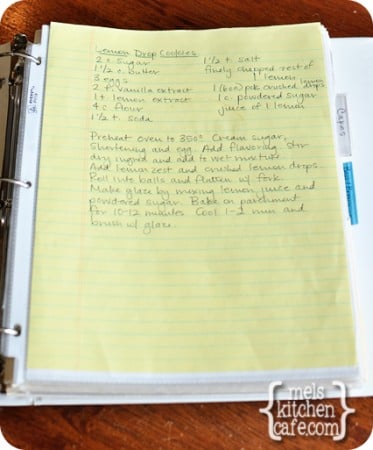 Lemon Drop Cookies
2 c. sugar
1 1/2 c. butter
3 eggs
2 t. vanilla extract
1 t lemon extract
4 c flour
1 1/2 t. soda
1 1/2 t. salt
finely chopped zest of
1 lemon
1 (6oz) pck crushed lemon drops
1 c. powdered sugar
juice of 1 lemon
Preheat oven to 350°. Cream sugar,
shortening and egg. Add flavoring. Stir
dry ingred and add to wet mixture.
Add lemon zest and crushed lemon drops.
Roll into balls and flatten w/ fork.
Make glaze by mixing lemon juice and
powdered sugar. Bake on parchment
for 10-12 minutes. Cool 1-2 min and
brush w/ glaze.
mels
kitchen
cafe.com